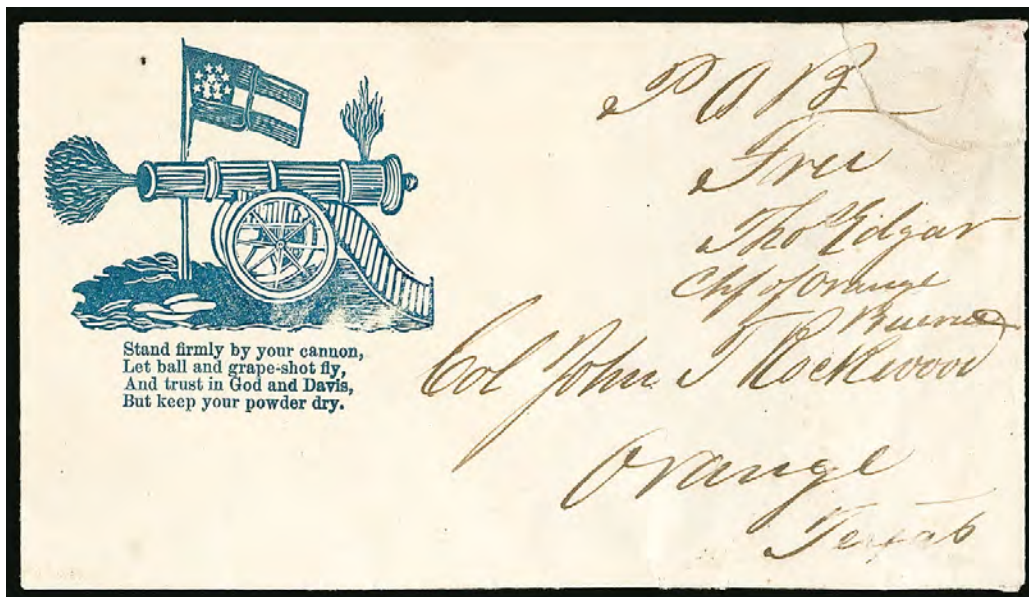 Stand firmly by your cannon,
Let ball and grape-shot fly,
And trust in God and Davis,
But keep your powder dry.
P O B
Free
Thos Edgar
of Orange
Col John T Rockwood
Orange
Texas